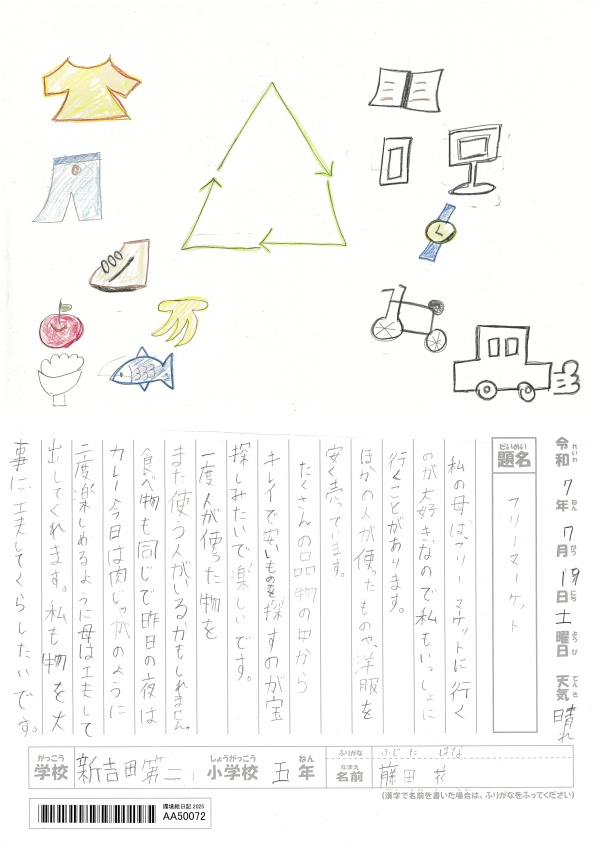 令和7年7月19日土曜日 天気晴れ
題名 フリーマーケット
私の母は、フリーマーケットに行く
のが大好きなので私もいっしょに
行くことがあります。
ほかの人が使ったものや、洋服を
安く売っています。
たくさんの品物の中から
キレイで安いものを探すのが宝
探しみたいで楽しいです。
一度人が使った物を
また使う人がいるかもしれません。
食べ物も同じで昨日の夜は
カレー今日は肉じゃがのように
二度楽しめるように母は工夫して
出してくれます。私も物を大
事に、工夫してくらしたいです。
学校 新吉田第二小学校 五年
ふりがな ふじた はな
名前 藤田 花
(漢字で名前を書いた場合は、ふりがなをふってください)
環境絵日記 2025
AA50072